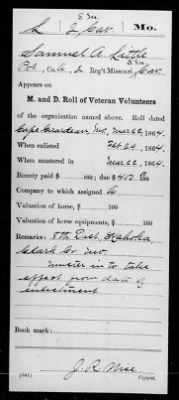 L 2 Cav. Mo.
Samuel A. Little
Pvt., Co. A, 2 Reg't Missouri Cav.
Appears on
M. and D. Roll of Veteran Volunteers
of the organization named above. Roll dated
Cape Girardeau, Mo., Mar 22, 1864.
When enlisted Feb 29, 1864.
When mustered in Mar 22, 1864.
Bounty paid $ 100; due $ 100
Company to which assigned
Valuation of horse, $ 100
Valuation of horse equipments, $ 100
Remarks: 8th Dist, Kahoka
Clark Co. Mo.
Muster in to take
effect from date of
enlistment
Book mark:
J. R. Wise
(541) Copyist.